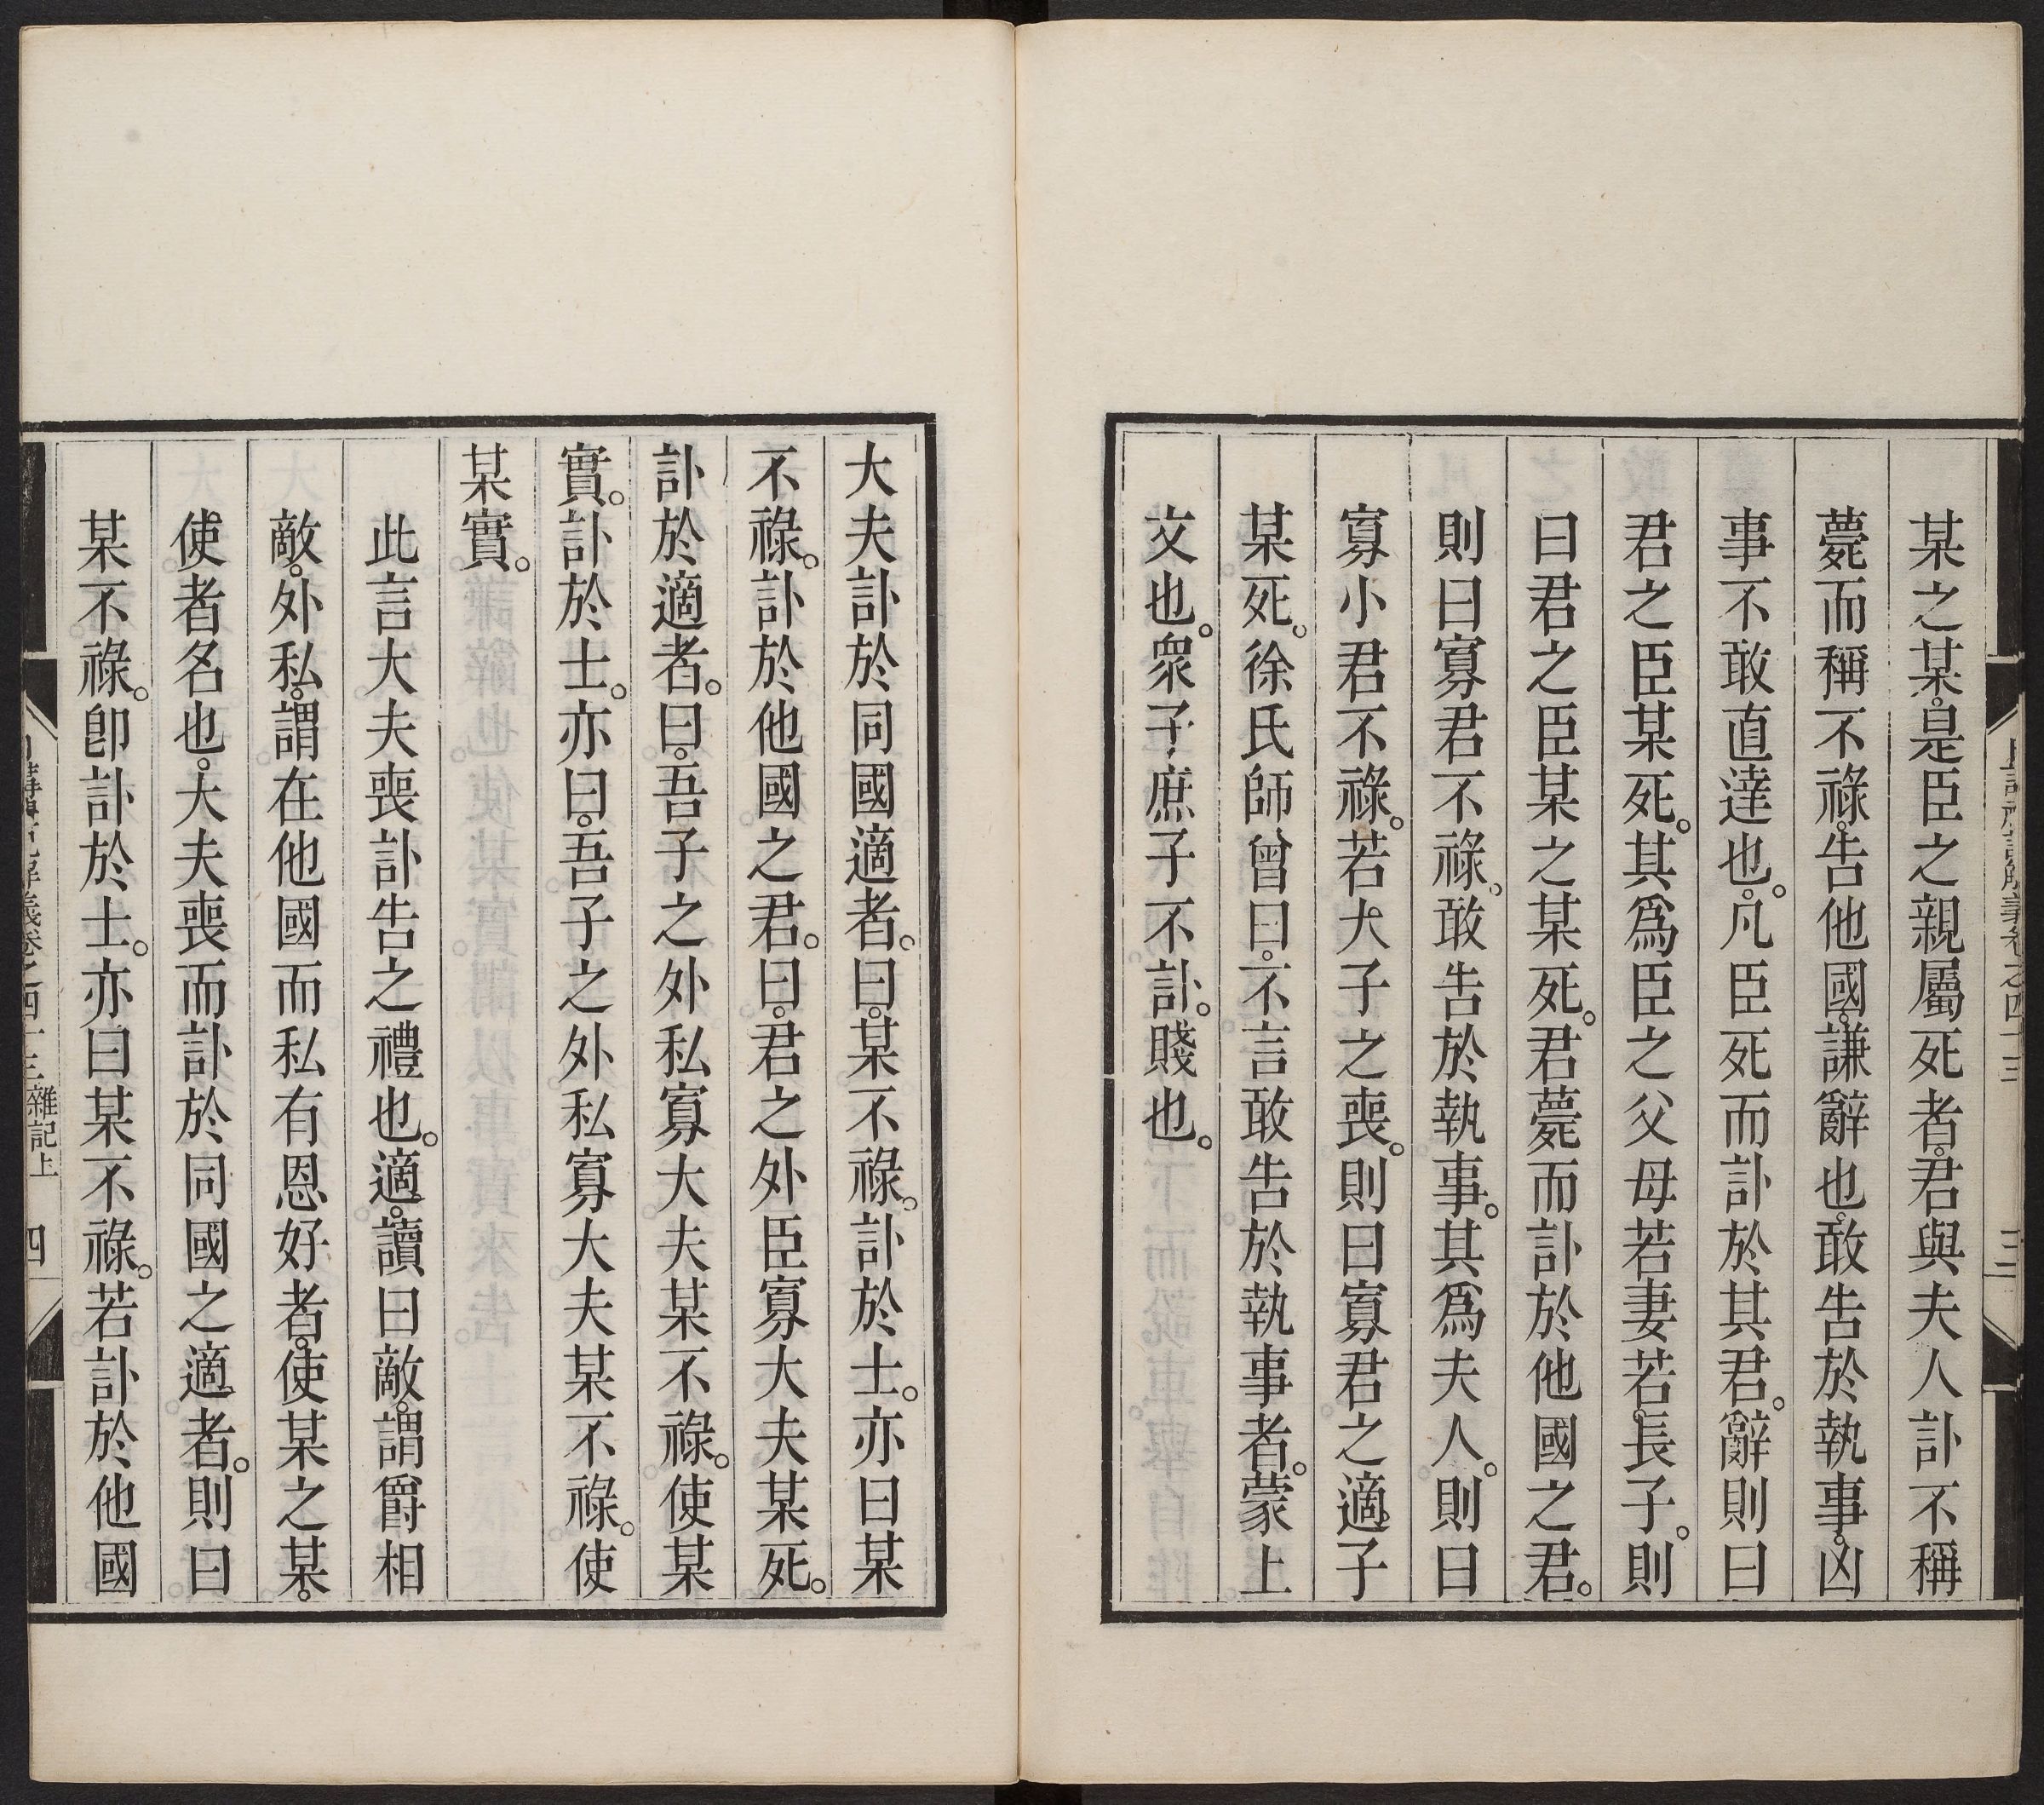 某之某。是臣之親屬死者。君與夫人訃不稱
薨而稱不祿。告他國。謙辭也。敢告於執事。凶
事不敢直達也。凡臣死而訃於其君。辭則曰
君之臣某死。其爲臣之父母若妻若長子。則
曰君之臣某之某死。君薨而訃於他國之君。
則曰寡君不祿。敢告於執事。其爲夫人。則曰
寡小君不祿。若大子之喪。則曰寡君之適子
某死。徐氏師曾曰。不言敢告於執事者。蒙上
文也。衆子庶子不訃。賤也。
大夫訃於同國適者。曰。某不祿。訃於士。亦曰某
不祿。訃於他國之君。曰。君之外臣寡大夫某死。
訃於適者。曰。吾子之外私寡大夫某不祿。使某
實。訃於士。亦曰。吾子之外私寡大夫某不祿。使
某實。
此言大夫喪訃告之禮也。適。讀曰敵。謂爵相
敵。外私。謂在他國而私有恩好者。使某之某。
使者名也。大夫喪而訃於同國之適者。則曰
某不祿。卽訃於士。亦曰某不祿。若訃於他國
義卷之四十三 雜記上 四